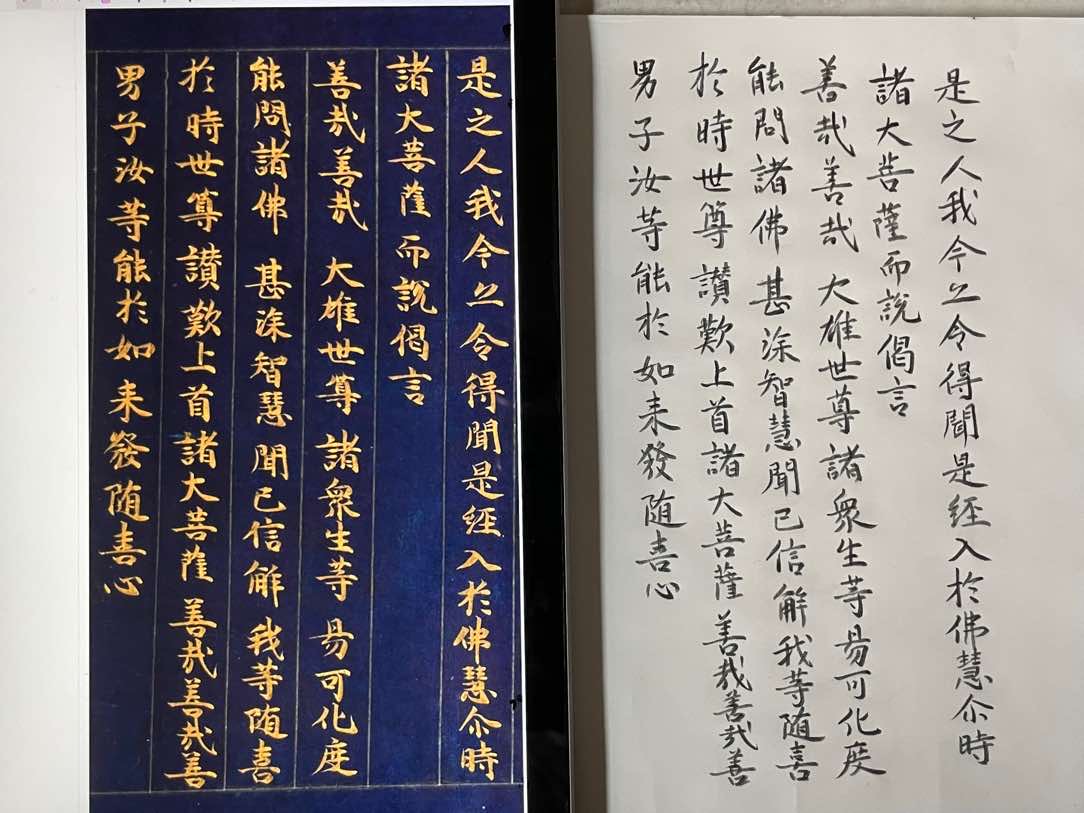 是之人我今亦令得聞是經入於佛慧尒時
諸大菩薩而說偈言
善哉善哉 大雄世尊 諸衆生等 易可化度
能問諸佛 甚深智慧 聞已信解 我等随喜
於時世尊讚歎上首諸大菩薩善哉善哉善
男子汝等能於如来發随喜心
是之人我今亦令得聞是經入於佛慧尒時
諸大菩薩而說偈言
善哉善哉 大雄世尊諸衆生等易可化度
能問諸佛甚深智慧聞已信解我等随喜
於時世尊讚歎上首諸大菩薩善哉善哉善
男子汝等能於如来發随喜心